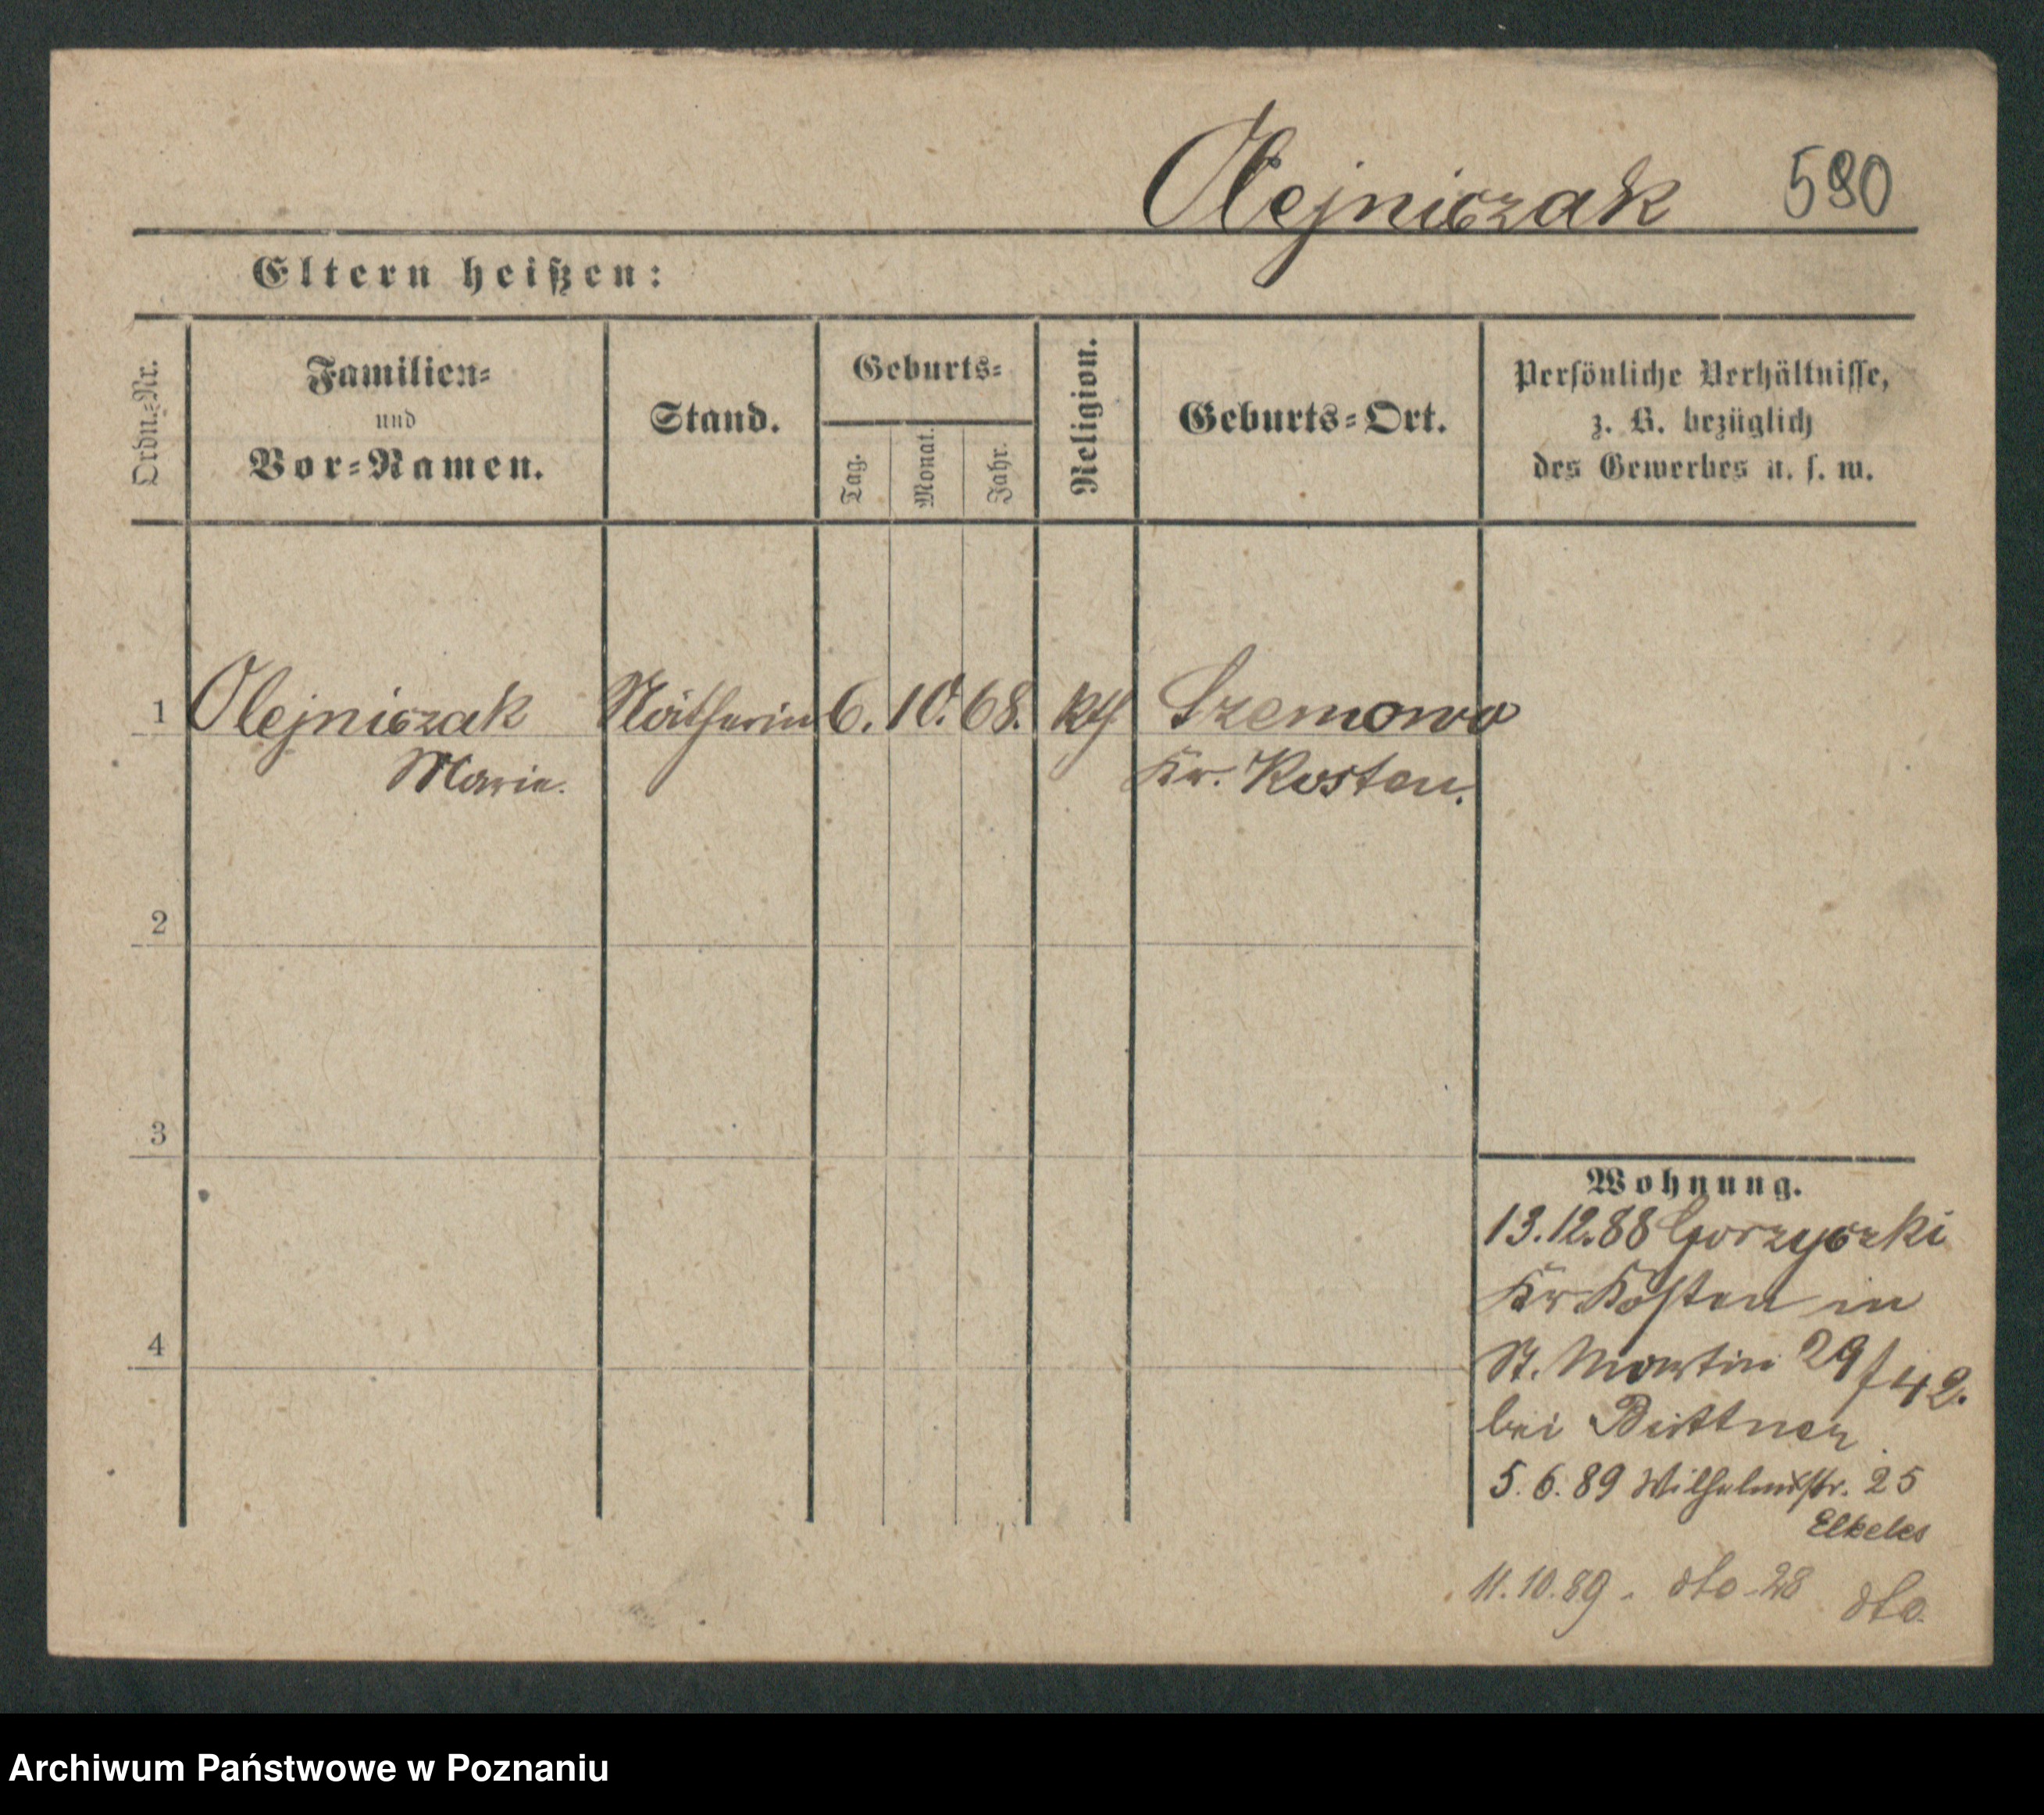 Olejniczak 590
Eltern heißen:
Ordn.-Nr.
Familien-
und
Vor-Namen.
Stand.
Geburts-
Tag.
Monat.
Jahr.
Religion.
Geburts-Ort.
Persönliche Verhältnisse,
z. B. bezüglich
des Gewerbes u. s. w.
1 Olejniczak Nätherin 6. 10. 68. kth Szemowo
Marie. Kr. Kosten.
2
3
4
Wohnung.
13.12.88 Gorzyczki
Kr Kosten in
St. Martin 29/42.
bei Bittner
5. 6. 89 Wilhelmstr. 25
Elkeles
11.10.89 - dto - 28 dto.
Archiwum Państwowe w Poznaniu